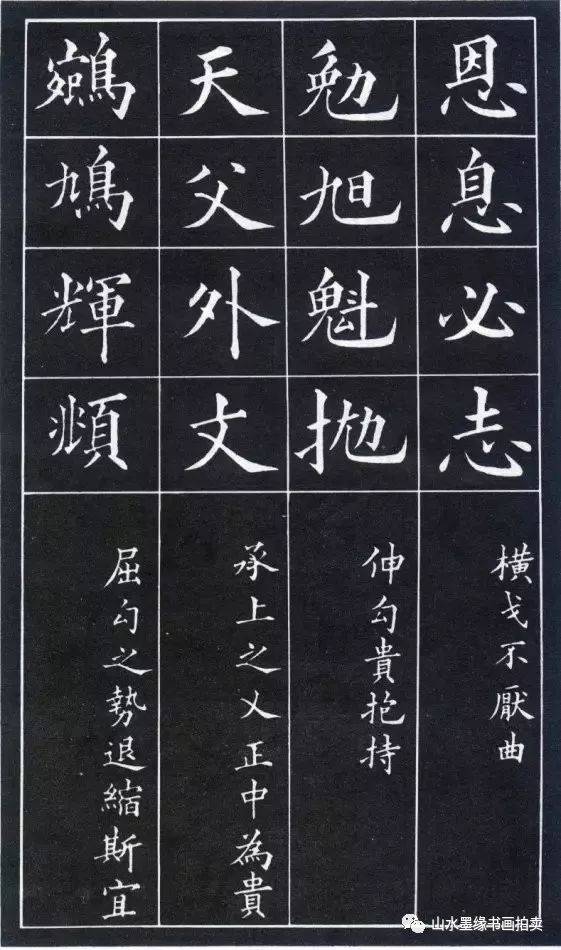 恩息必志
橫戈不厭曲
勉旭魁抛
伸勾貴抱持
天父外丈
承上之乂正中為貴
鵷鳩輝頫
屈勾之勢退縮斯宜
山水墨缘书画拍卖